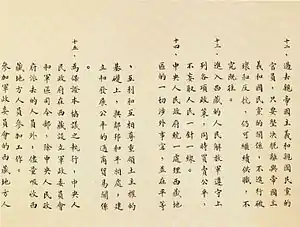 十二、過去親帝國主義和親國民黨的
官員，只要堅決脫離與帝國主
義和國民黨的關係，不進行破
壞和反抗，仍可繼續供職，不
究既往。
十三、進入西藏的人民解放軍遵守上
列各項政策，同時買賣公平，
不妄取人民一針一線。
十四、中央人民政府統一處理西藏地
區的一切涉外事宜，並在平等
、互利和互相尊重領土主權的
基礎上，與鄰邦和平相處，建
立和發展公平的通商貿易關係
十五、為保證本協議之執行，中央人
民政府在西藏設立軍政委員會
和軍區司令部，除中央人民政
府派去的人員外，儘量吸收西
藏地方人員參加工作。
參加軍政委員會的西藏地方人